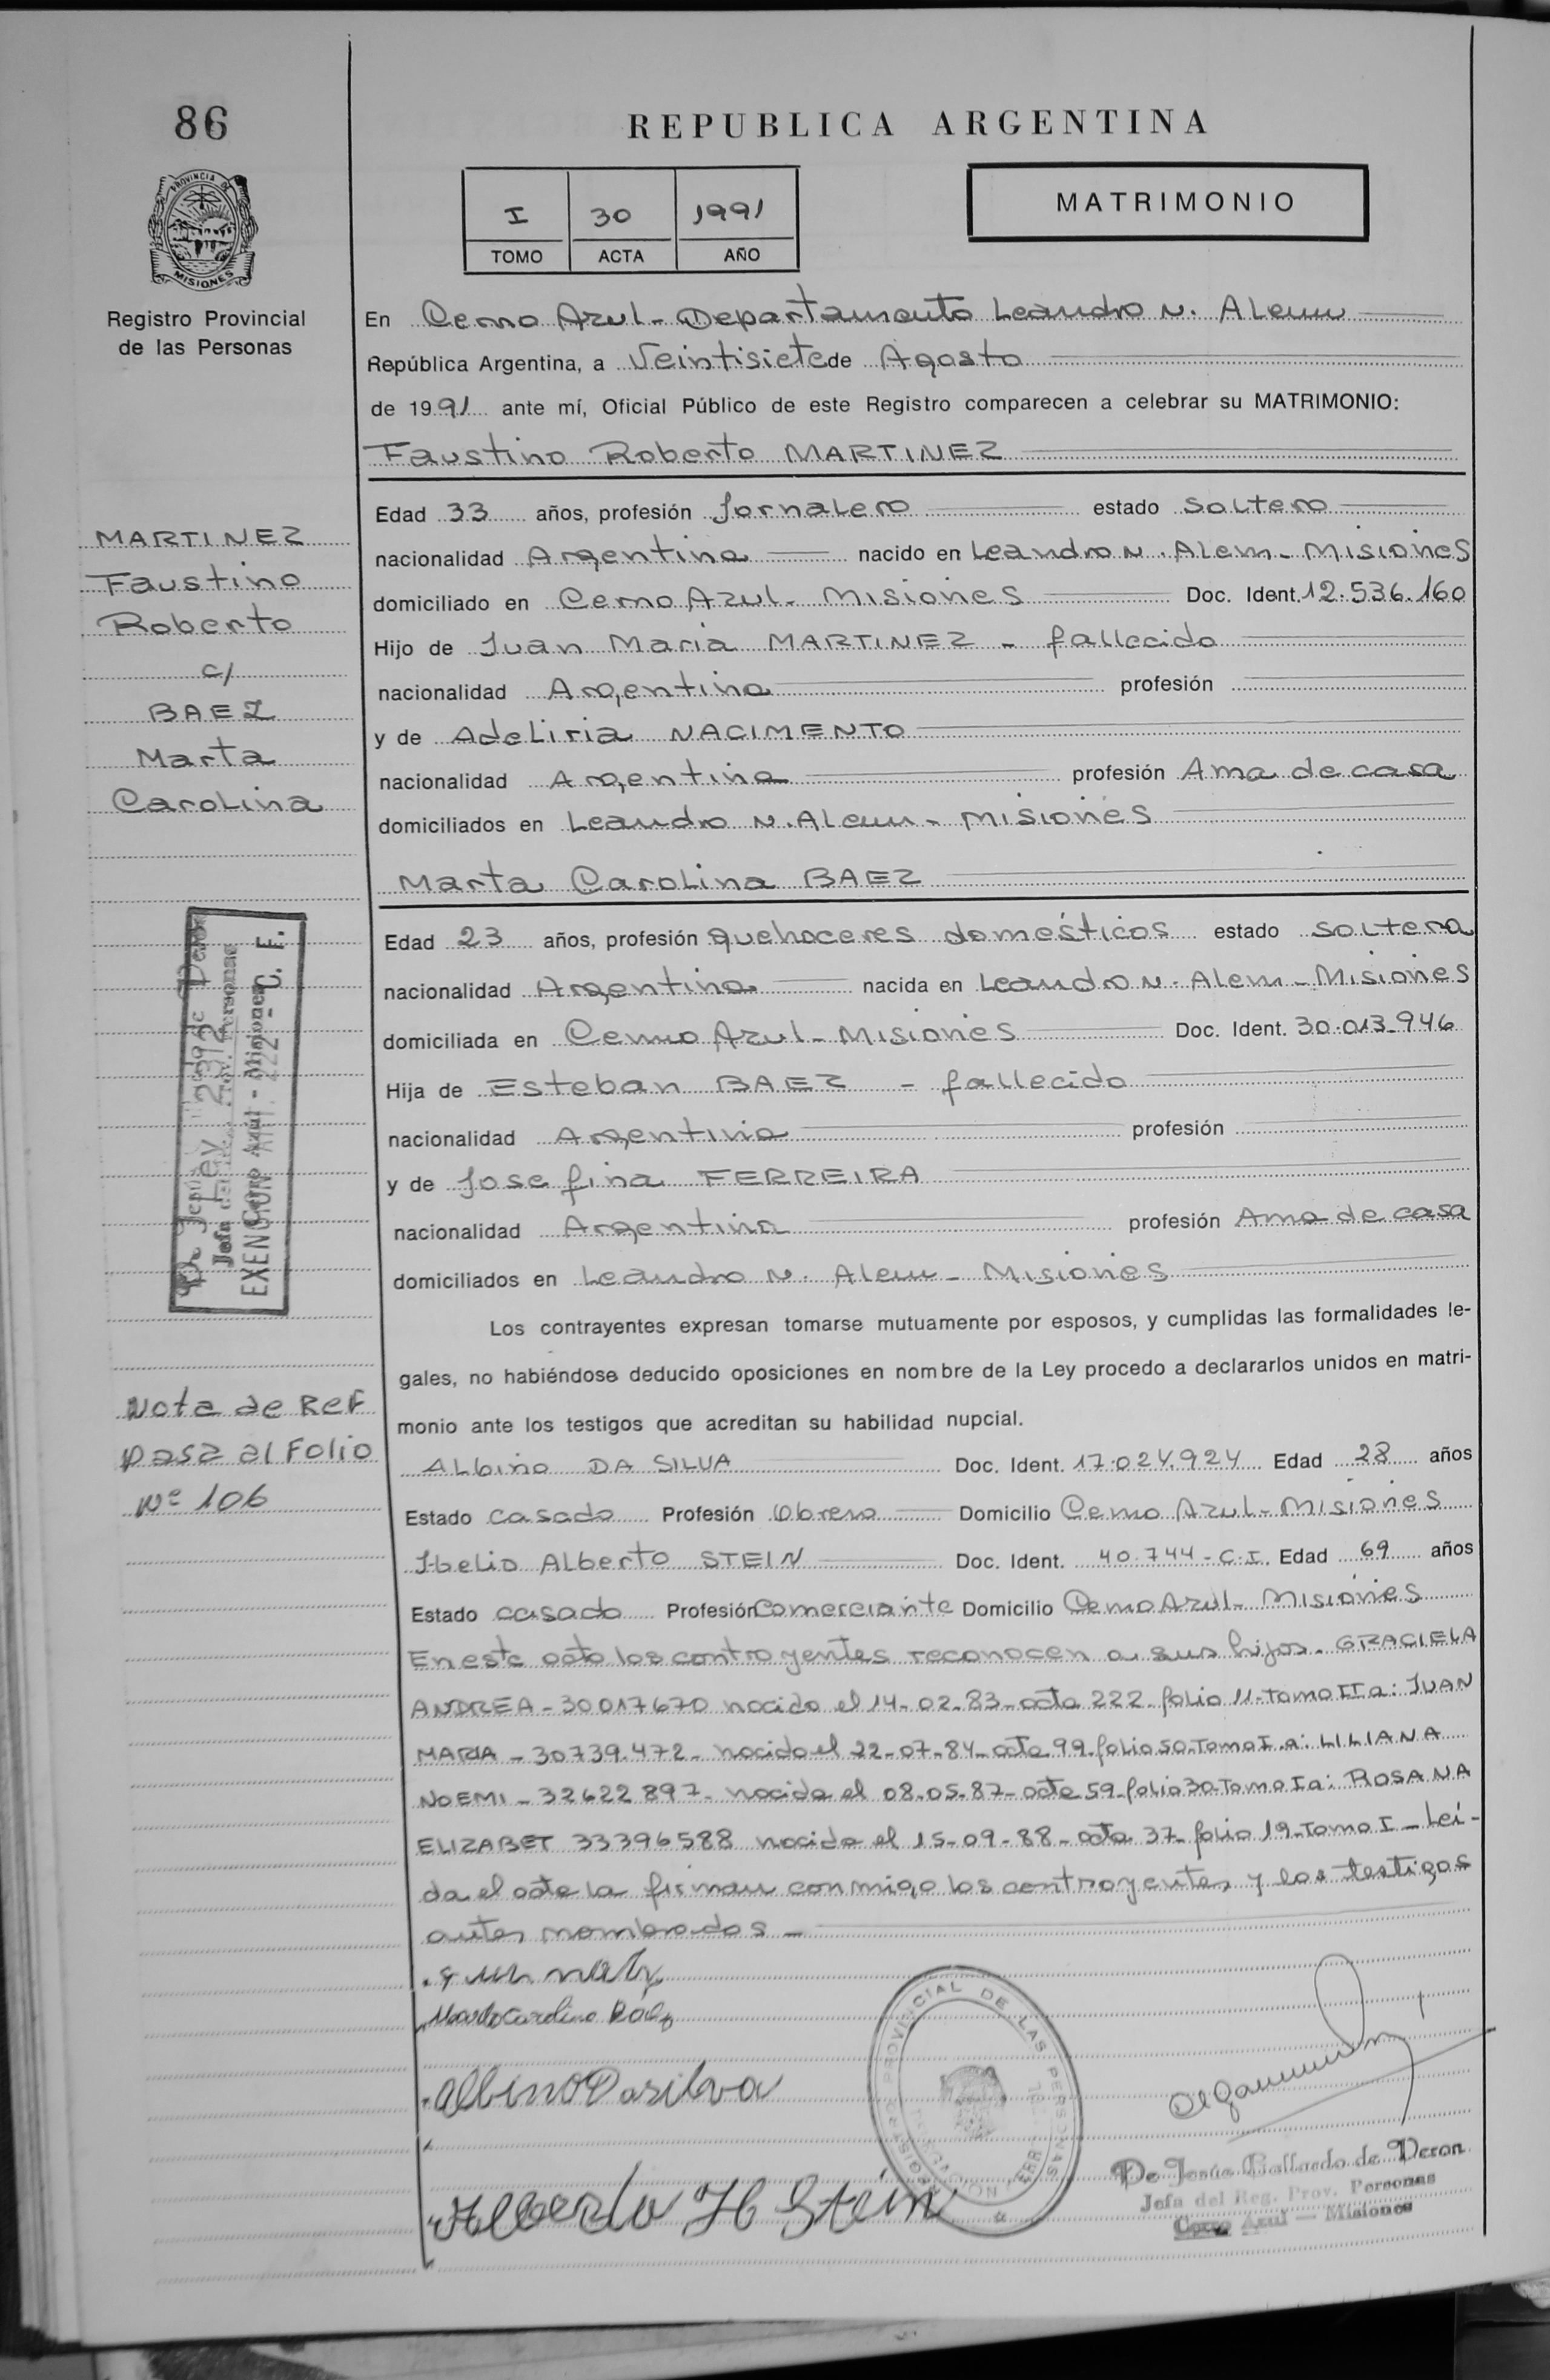 86
REPUBLICA ARGENTINA
PROVINCIA DE
MISIONES
I 30 1991
TOMO ACTA AÑO
MATRIMONIO
Registro Provincial
de las Personas
En Cerro Azul - Departamento Leandro N. Alem
República Argentina, a Veintisiete de Agosto
de 1991 ante mí, Oficial Público de este Registro comparecen a celebrar su MATRIMONIO:
Faustino Roberto MARTINEZ
MARTINEZ
Faustino
Roberto
c/
BAEZ
Marta
Carolina
Edad 33 años, profesión Jornalero estado soltero
nacionalidad Argentina nacido en Leandro N. Alem - Misiones
domiciliado en Cerro Azul - Misiones Doc. Ident. 12.536.160
Hijo de Juan Maria MARTINEZ - fallecido
nacionalidad Argentina profesión
y de Adeliria NACIMENTO
nacionalidad Argentina profesión Ama de casa
domiciliados en Leandro N. Alem - Misiones
Marta Carolina BAEZ
Edad 23 años, profesión quehaceres domésticos estado soltera
nacionalidad Argentina nacida en Leandro N. Alem - Misiones
domiciliada en Cerro Azul - Misiones Doc. Ident. 30.013.946
Hija de Esteban BAEZ - fallecido
nacionalidad Argentina profesión
y de Josefina FERREIRA
nacionalidad Argentina profesión Ama de casa
domiciliados en Leandro N. Alem - Misiones
Los contrayentes expresan tomarse mutuamente por esposos, y cumplidas las formalidades le-
gales, no habiéndose deducido oposiciones en nombre de la Ley procedo a declararlos unidos en matri-
monio ante los testigos que acreditan su habilidad nupcial.
Albino DA SILVA Doc. Ident. 17.024.924 Edad 28 años
Estado casado Profesión Obrero Domicilio Cerro Azul - Misiones
Ibelio Alberto STEIN Doc. Ident. 40.744 - C.I. Edad 69 años
Estado casado Profesión Comerciante Domicilio Cerro Azul - Misiones
En este acto los contrayentes reconocen a sus hijos - GRACIELA
ANDREA - 30017670 nacida el 14-02-83 - acta 222 - folio 11 - tomo II a: JUAN
MARIA - 30739.472 - nacido el 22-07-84 - acta 99 - folio 50 - Tomo I. a: LILIANA
NOEMI - 32622897 - nacida el 08-05-87 - acta 59 - folio 30 - Tomo I a: ROSANA
ELIZABET 33396588 nacida el 15-09-88 - acta 37 - folio 19 - Tomo I - Leí-
da el acta la firman conmigo los contrayentes y los testigos
antes nombrados -
Nota de Ref
pasa al Folio
Nº 106
EXENCION
Ley
Cerro Azul - Misiones
Marta Carolina Baez
Albino Da silva
Alberto H Stein
REGISTRO PROVINCIAL DE LAS PERSONAS
De Jesús Gallardo de Veron
Jefa del Reg. Prov. Personas
Cerro Azul — Misiones